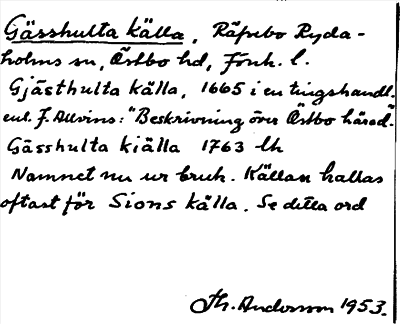 Gässhulta källa, Råfrebo Ryda-
holms sn, Östbo hd, Jönk. l.
Gjästhulta källa, 1665 i en tingshandl.
enl. J. Allvins: "Beskrivning över Östbo härad."
Gässhulta kiälla 1763 lh
Namnet nu ur bruk. Källan kallas
oftast för Sions källa. Se detta ord
Th. Andersson 1953.